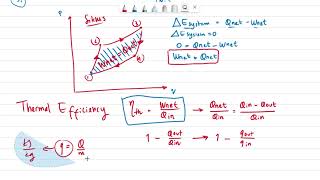 P
V
1
2
3
Wnet = Qnet
ΔEsystem = Qnet - Wnet
ΔEsystem = 0
0 = Qnet - Wnet
Wnet = Qnet
Thermal Efficiency
ηth = Wnet / Qin → Qnet / Qin = Qin - Qout / Qin
1 - Qout / Qin → 1 - qout / qin
kJ / kg ← q = Q / m